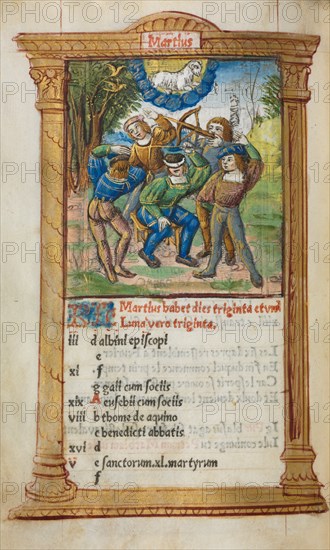 Martius
KL Martius habet dies triginta et vnū
Luna vero triginta.
iii d albini episcopi
e
xi f
g gaii cum sociis
xix A euschii cum sociis
viii b thome de aquino
c benedicti abbatis
xvi d
v e sanctorum.xl.martyrum
f